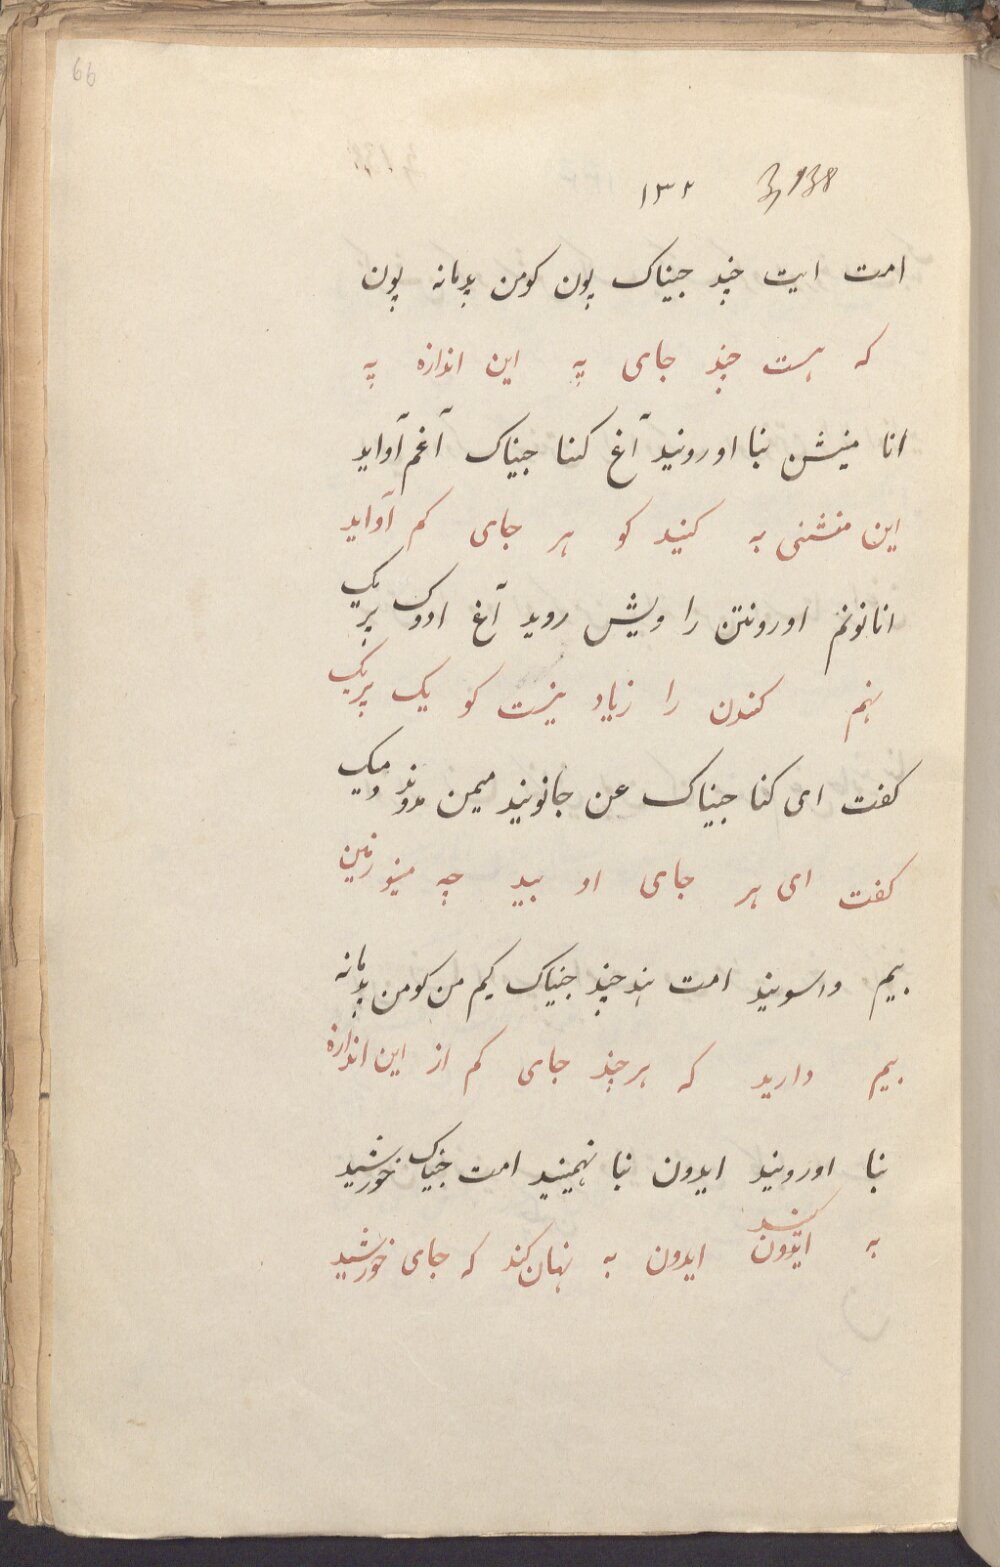 66
۱۳۲ 3,138
امت ایت چند جیناک پون کومن پدمانه پون
که هست چند جای په این اندازه په
انا منیشن بنا اورونید آغ کنا جیناک آغم آواید
این منشنی به کنید کو هر جای کم آواید
انا نونم اورونتن را ویش روید آغ ادوک پریک
نهم کندن را زیاد کو یک پریک
کفت ای کنا جیناک عن جانونید میمن
کفت ای هر جای او بید چه مینو زمین
بیم داسونید امت هند چند جیناک کیم من کومن پدمانه
بیم دارید که هر چند جای کم از این اندازه
بنا اورونید ایدون بنا نهمبنید امت جیناک خورشید
کنند
به ایدون ایدون به نهان کند که جای خورشید